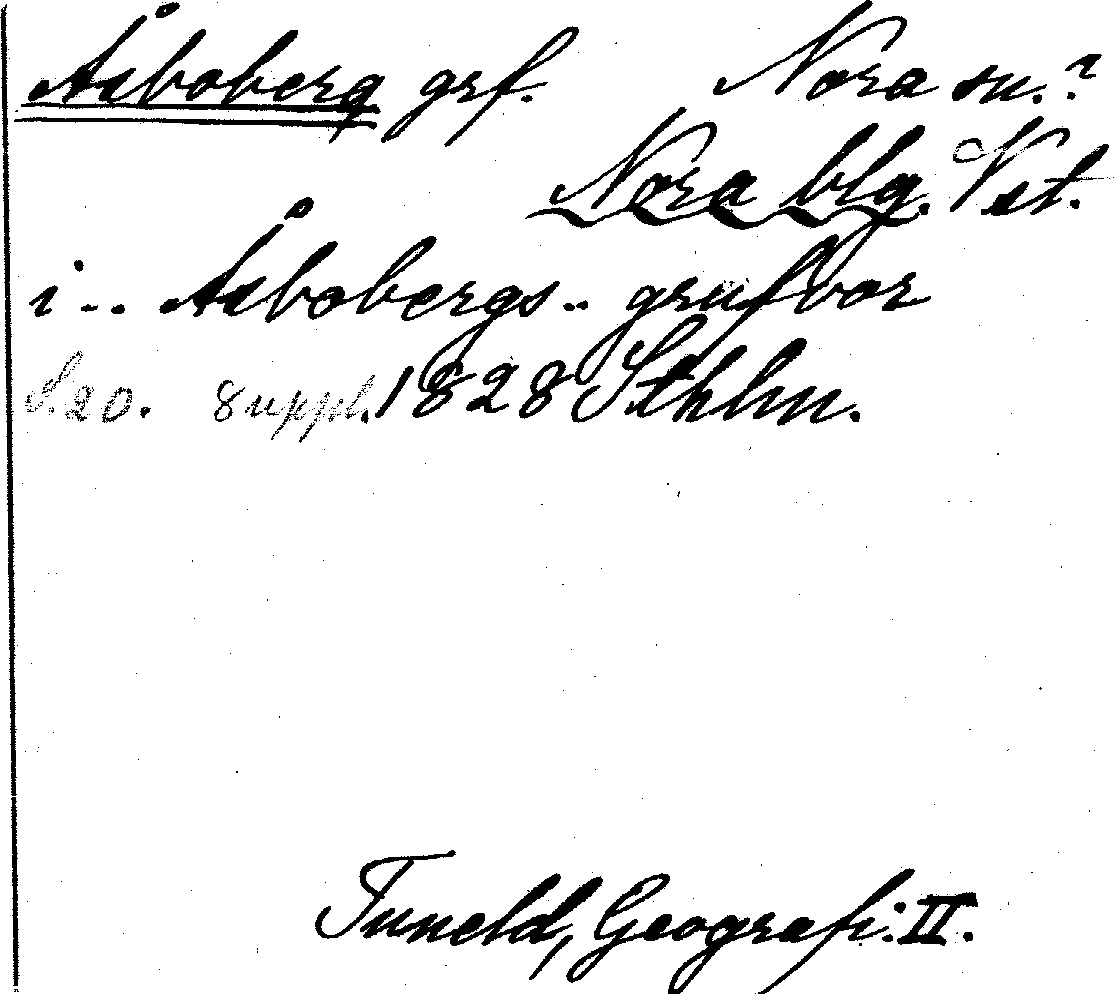 Åsboberg grf. Nora sn.?
Nora blg. Vst.
i .. Åsbobergs .. grufvor
S. 20. Suppl. 1828 Sthlm.
Tuneld, Geografi. II.